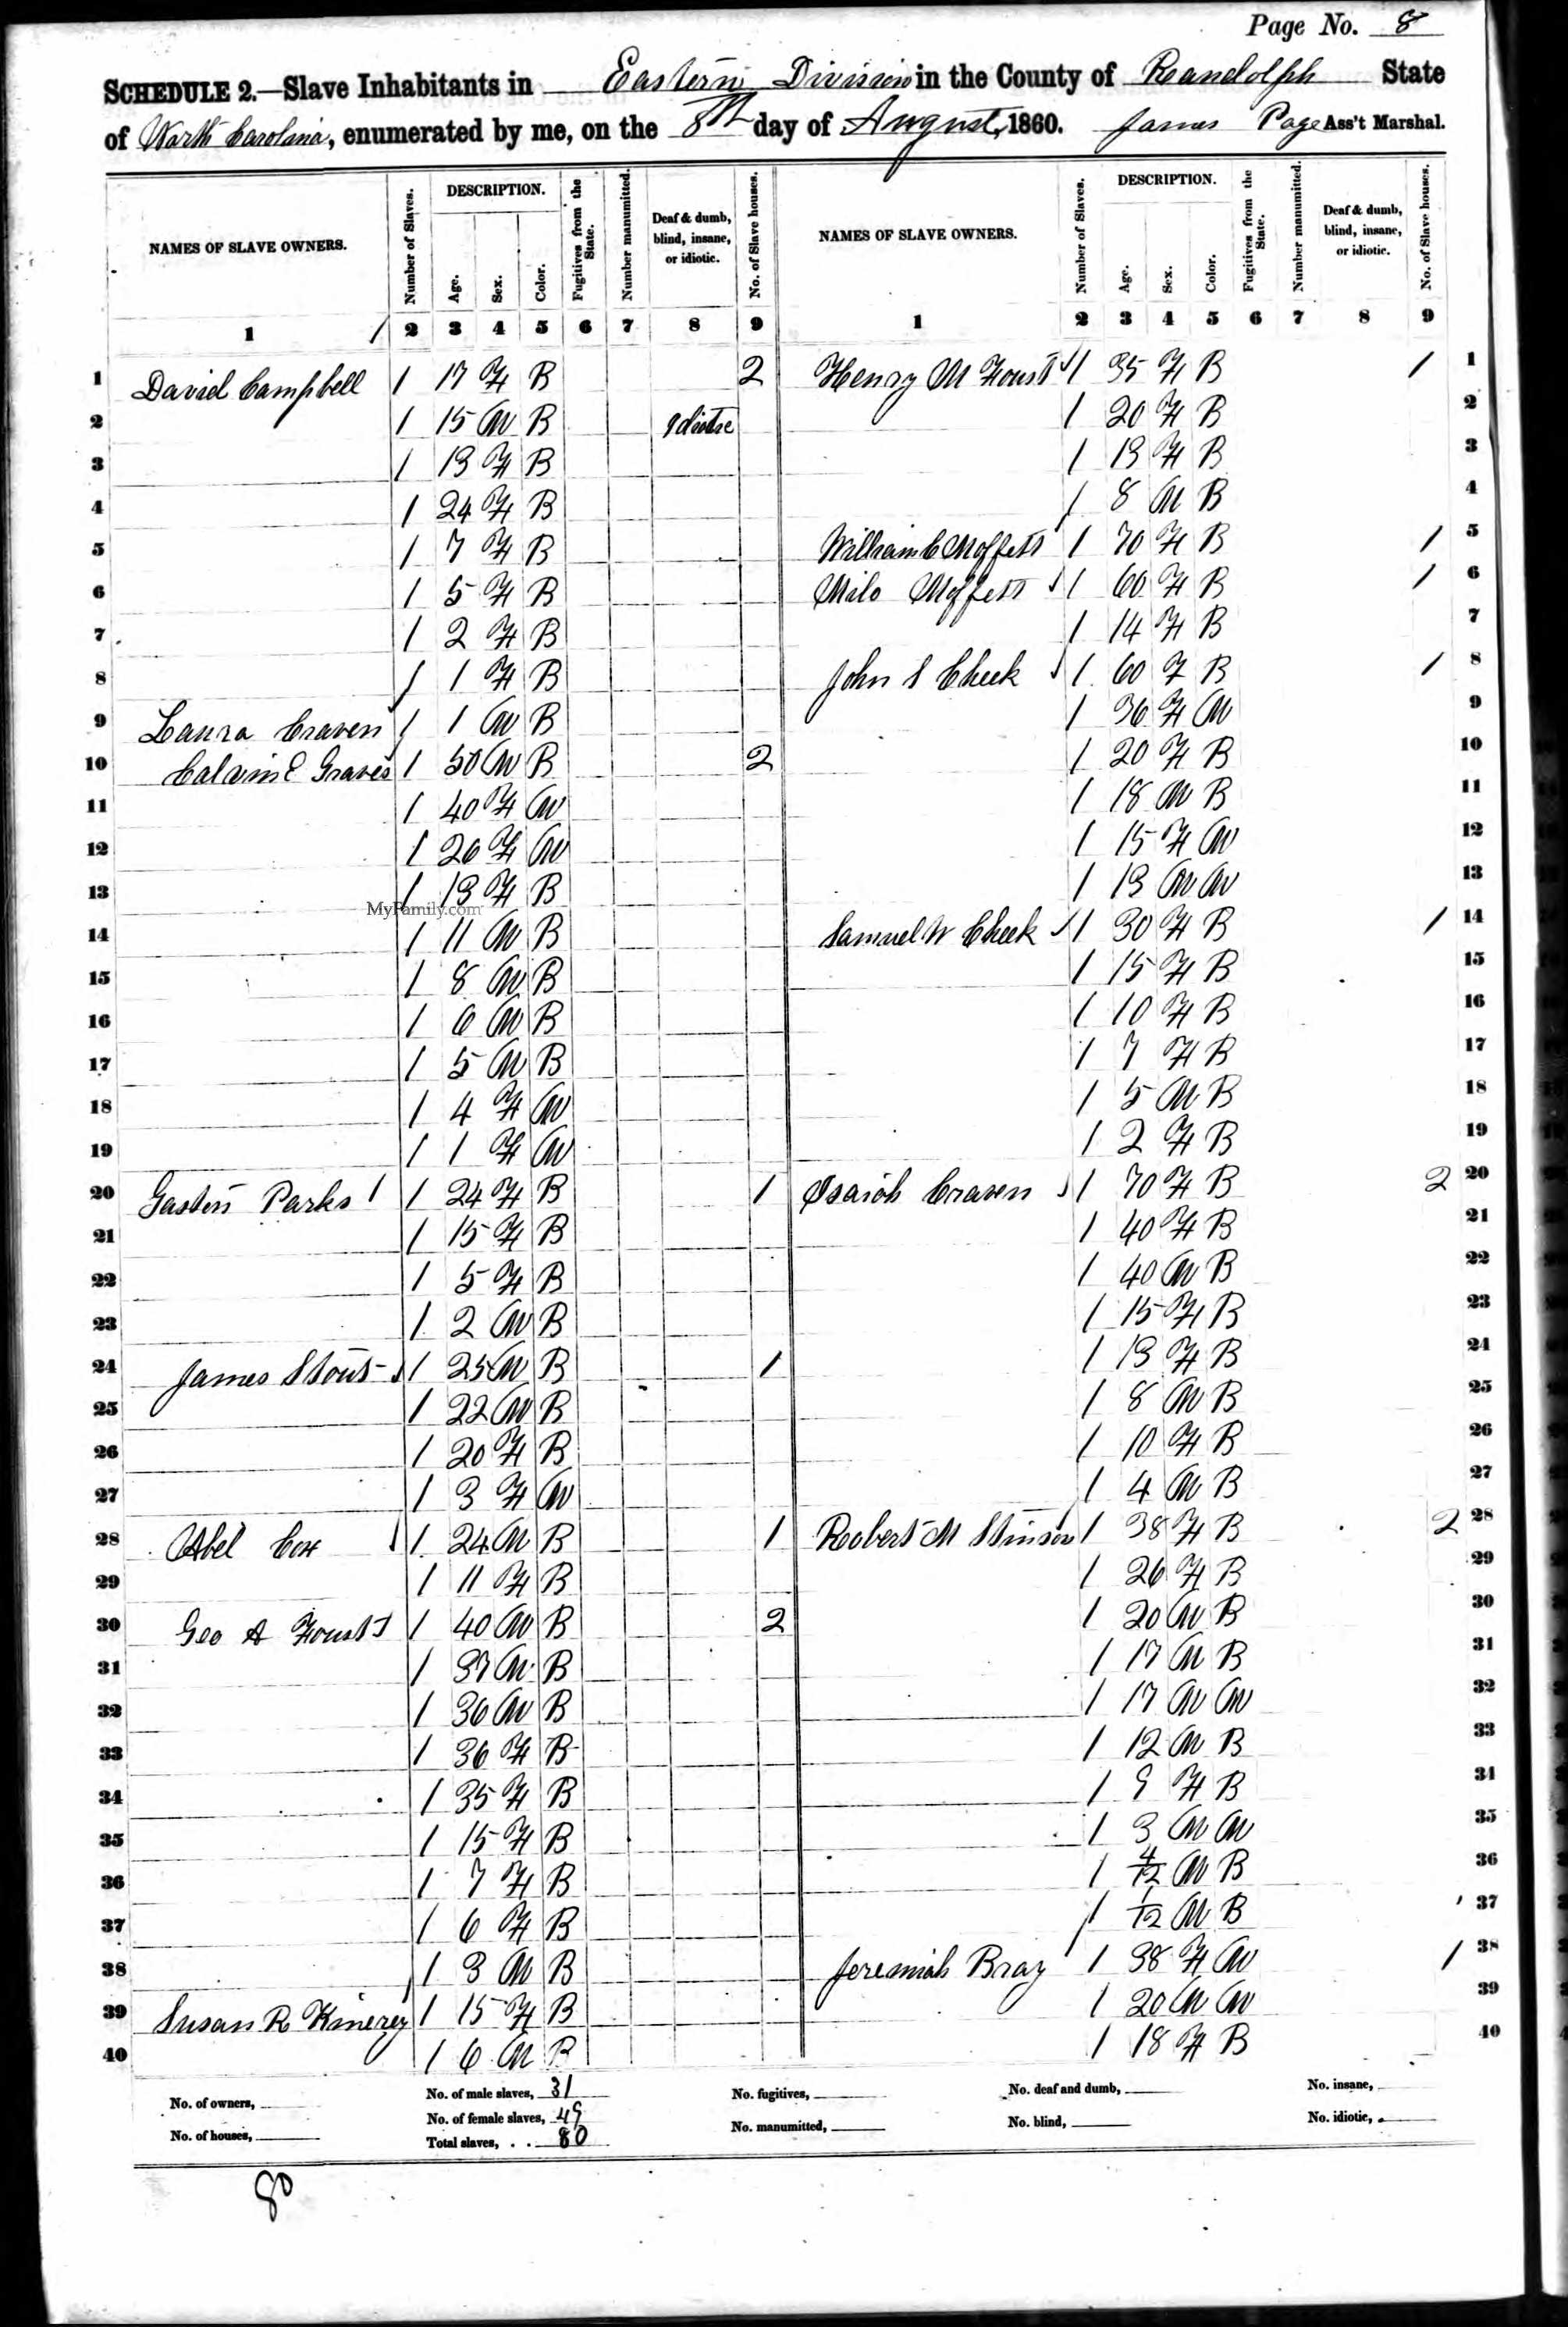 Page No. 8
SCHEDULE 2.—Slave Inhabitants in Eastern Division in the County of Randolph State
of North Carolina, enumerated by me, on the 8th day of August, 1860. James Page Ass't Marshal.
NAMES OF SLAVE OWNERS. Number of Slaves. DESCRIPTION. Age. Sex. Color. Fugitives from the State. Number manumitted. Deaf & dumb, blind, insane, or idiotic. No. of Slave houses. NAMES OF SLAVE OWNERS. Number of Slaves. DESCRIPTION. Age. Sex. Color. Fugitives from the State. Number manumitted. Deaf & dumb, blind, insane, or idiotic. No. of Slave houses.
1 2 3 4 5 6 7 8 9 1 2 3 4 5 6 7 8 9
1 David Campbell 1 17 F B 2 Henry M Foust 1 35 F B 1 1
2 1 15 M B 1 20 F B 2
3 1 13 F B 1 13 F B 3
4 1 24 F B 1 8 M B 4
5 1 7 F B William C Moffett 1 70 F B 1 5
6 1 5 F B Milo Moffett 1 60 F B 1 6
7 1 2 F B 1 14 F B 7
8 1 1 F B John S Cheek 1 60 F B 1 8
9 Laura Craven 1 1 M B 1 36 F M 9
10 Calvin E Graves 1 50 M B 2 1 20 F B 10
11 1 40 F M 1 18 M B 11
12 1 26 F M 1 15 F M 12
13 1 13 F B 1 13 M M 13
MyFamily.com
14 1 11 M B Samuel W Cheek 1 30 F B 1 14
15 1 8 M B 1 15 F B 15
16 1 6 M B 1 10 F B 16
17 1 5 M B 1 7 F B 17
18 1 4 F M 1 5 M B 18
19 1 1 F M 1 2 F B 19
20 Gaston Parks 1 24 F B 1 Isaiah Craven 1 70 F B 2 20
21 1 15 F B 1 40 F B 21
22 1 5 F B 1 40 M B 22
23 1 2 M B 1 15 F B 23
24 James Stout 1 25 M B 1 1 13 F B 24
25 1 22 M B 1 8 M B 25
26 1 20 F B 1 10 F B 26
27 1 3 F M 1 4 M B 27
28 Abel Cox 1 24 M B 1 Robert M Stinson 1 38 F B 2 28
29 1 11 F B 1 26 F B 29
30 Geo A Foust 1 40 M B 2 1 20 M B 30
31 1 37 M B 1 17 M B 31
32 1 36 M B 1 17 M M 32
33 1 36 F B 1 12 M B 33
34 1 35 F B 1 9 F B 34
35 1 15 F B 1 3 M M 35
36 1 7 F B 1 4/12 M B 36
37 1 6 F B 1 1/12 M B 37
38 1 3 M B Jeremiah Bray 1 38 F M 1 38
39 Susan R 1 15 F B 1 20 M M 39
40 1 6 M B 1 18 F B 40
No. of owners, No. of male slaves, 31 No. fugitives, No. deaf and dumb, No. insane,
No. of houses, No. of female slaves, 49 No. manumitted, No. blind, No. idiotic,
Total slaves, . . 80
80